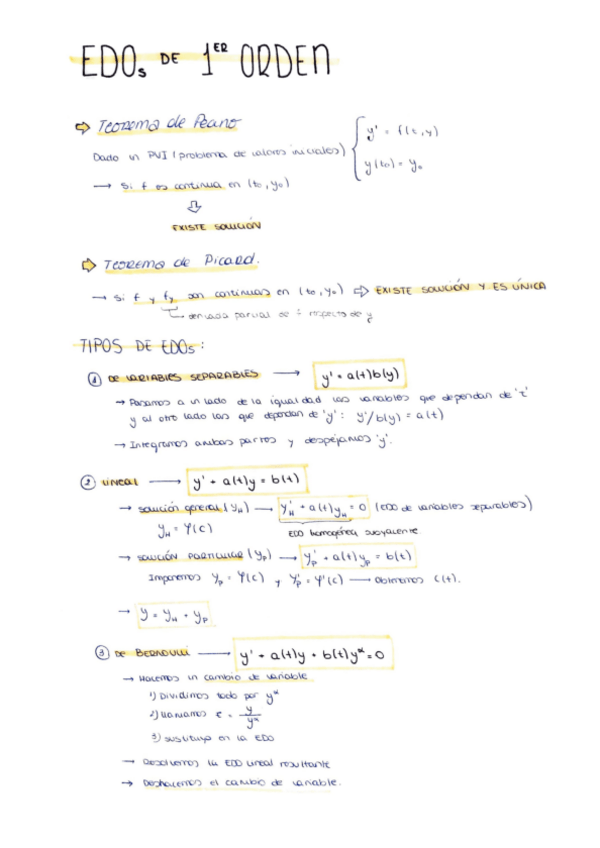 EDOs DE 1ER ORDEN
⇨ Teorema de Peano
Dado un PVI (problema de valores iniciales) { y' = f(t,y)
y(t0) = y0
→ Si f es continua en (t0, y0)
⇩
EXISTE SOLUCIÓN
⇨ TEOREMA de Picard.
→ si f y fy son continuas en (t0, y0) ⇨ EXISTE SOLUCIÓN Y ES ÚNICA
derivada parcial de f respecto de y
TIPOS DE EDOs:
① DE VARIABLES SEPARABLES → y' = a(t)b(y)
→ Pasamos a un lado de la igualdad las variables que dependan de 't'
y al otro lado las que dependan de 'y': y'/b(y) = a(t)
→ Integramos ambas partes y despejamos 'y'.
② LINEAL → y' + a(t)y = b(t)
→ solución general (yH) → y'H + a(t)yH = 0 (EDO de variables separables)
yH = φ(c) EDO homogénea subyacente
→ SOLUCIÓN PARTICULAR (yP) → y'P + a(t)yP = b(t)
Imponemos yP = φ(c) y y'P = φ'(c) → Obtenemos c(t).
→ y = yH + yP
③ DE BERNOULLI → y' + a(t)y + b(t)y^α = 0
→ Hacemos un cambio de variable
1) Dividimos todo por y^α
2) Llamamos z = y/y^α
3) sustituyo en la EDO
→ Resolvemos la EDO lineal resultante
→ Deshacemos el cambio de variable.